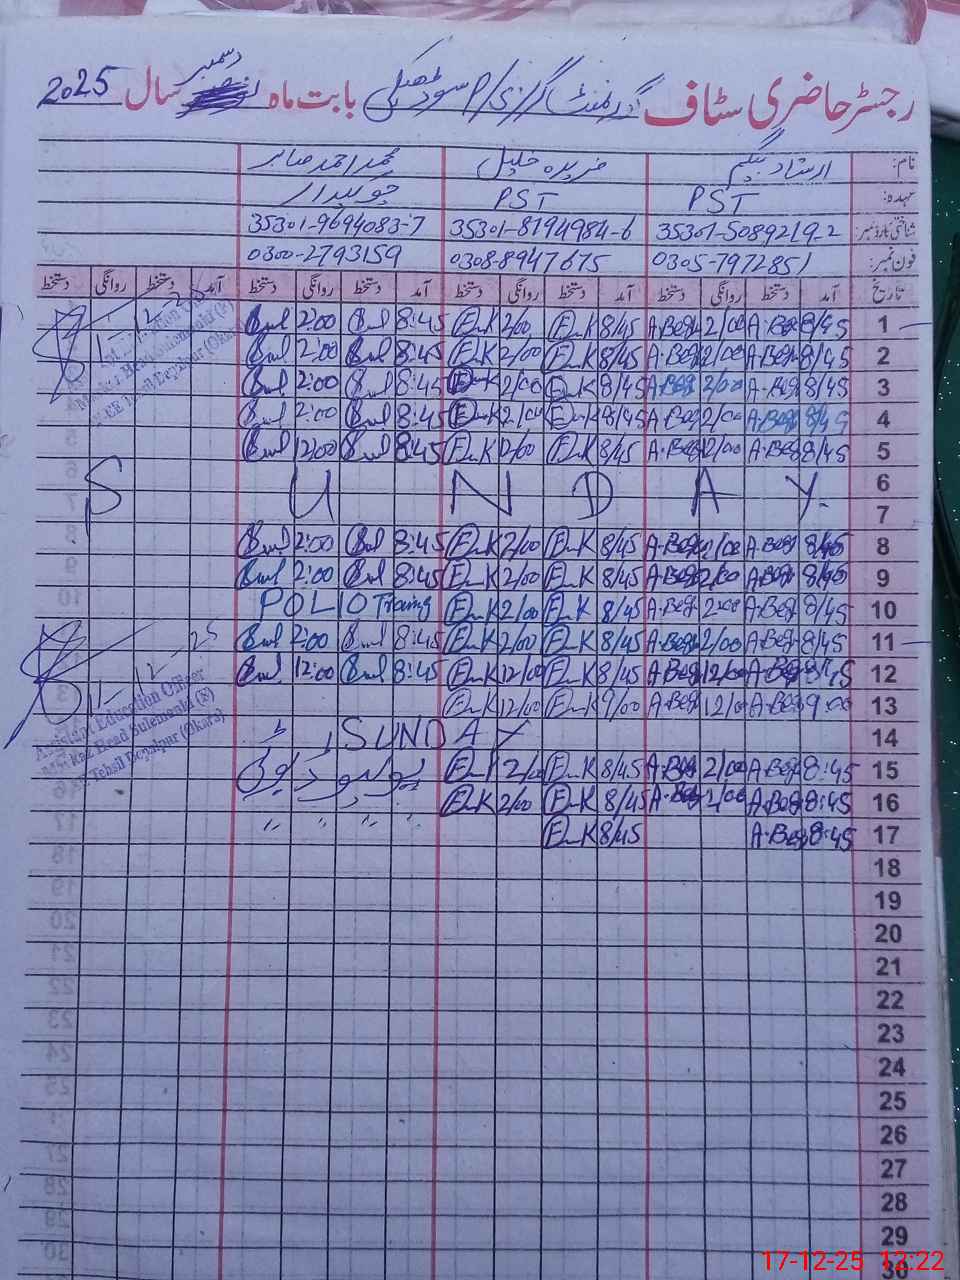 رجسٹر حاضری سٹاف گورنمنٹ گرلز P/S بابت ماہ دسمبر سال 2025
نام: ارشاد بیگم فریدہ خلیل محمد احمد صابر
عہدہ: PST PST چوکیدار
شناختی کارڈ نمبر: 35301-5089219-2 35301-8194984-6 35301-9694083-7
فون نمبر: 0305-7972851 0308-8947675 0300-2793159
تاریخ آمد دستخط روانگی دستخط آمد دستخط روانگی دستخط آمد دستخط روانگی دستخط آمد دستخط روانگی دستخط
1 8/45 A.Beg 2/00 A.Beg 8/45 F_K 2/00 F_K 8:45 2:00
2 8/45 A.Beg 2/00 A.Beg 8/45 F_K 2/00 F_K 8:45 2:00
3 8/45 A.Beg 2/00 A.Beg 8/45 F_K 2/00 F_K 8:45 2:00
4 8/45 A.Beg 2/00 A.Beg 8/45 F_K 2/00 F_K 8:45 2:00
5 8/45 A.Beg 12/00 A.Beg 8/45 F_K 12/00 F_K 8:45 12:00
6
SUNDAY
7
8 8/45 A.Beg 2/00 A.Beg 8/45 F_K 2/00 F_K 8:45 2:00
9 8/45 A.Beg 2/00 A.Beg 8/45 F_K 2/00 F_K 8:45 2:00
10 8/45 A.Beg 2:00 A.Beg 8/45 F_K 2/00 F_K POLIO Traing
11 8/45 A.Beg 2/00 A.Beg 8/45 F_K 2/00 F_K 8:45 2:00
11-12-25
12 8/45 A.Beg 12/00 A.Beg 8/45 F_K 12/00 F_K 8:45 12:00
Assistant Education Officer
Markaz Head Sulemanki (X)
Tehsil Depalpur (Okara)
13 9:00 A.Beg 12/00 A.Beg 9/00 F_K 12/00 F_K
14 SUNDAY
15 8:45 A.Beg 2/00 A.Beg 8/45 F_K 2/00 F_K پولیو ڈیوٹی
16 8:45 A.Beg 2/00 A.Beg 8/45 F_K 2/00 F_K
17 8:45 A.Beg 8/45 F_K " " " "
18
19
20
21
22
23
24
25
26
27
28
29
30
17-12-25 12:22